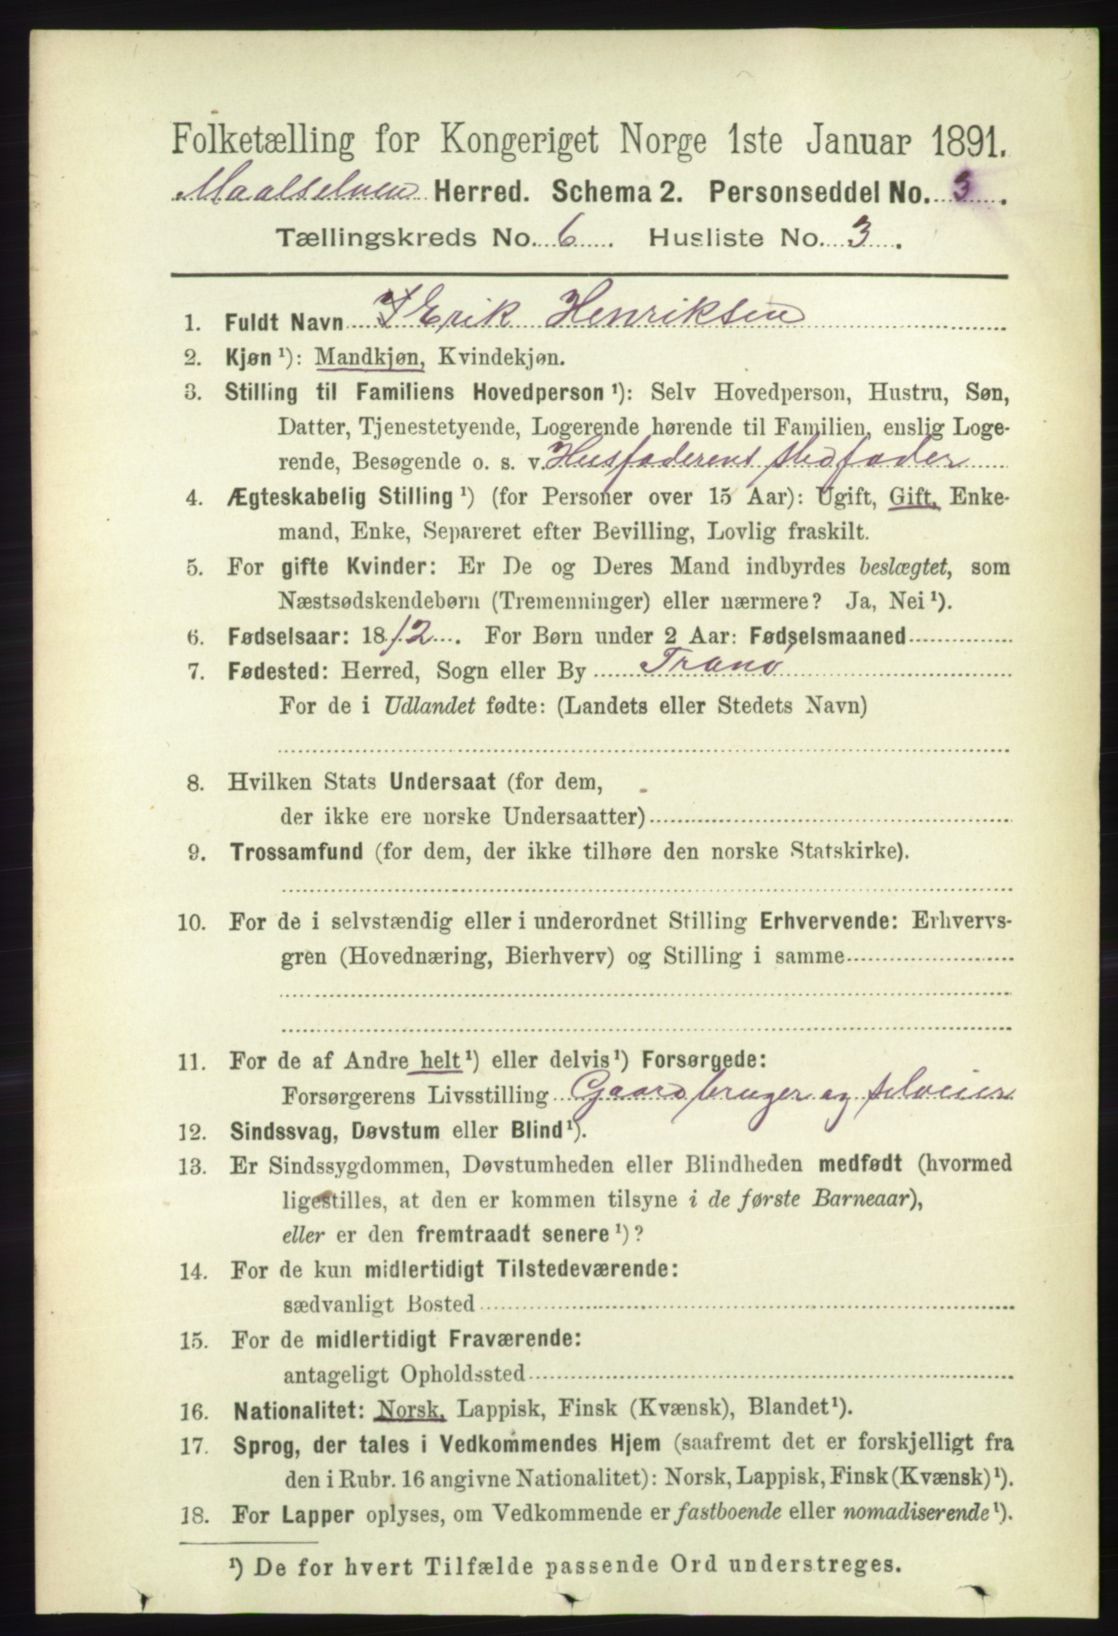 Folketælling for Kongeriget Norge 1ste Januar 1891.
Maalselven Herred. Schema 2. Personseddel No. 3.
Tællingskreds No. 6. Husliste No. 3.
1. Fuldt Navn Erik Henriksen
2. Kjøn ¹): Mandkjøn, Kvindekjøn.
3. Stilling til Familiens Hovedperson ¹): Selv Hovedperson, Hustru, Søn,
Datter, Tjenestetyende, Logerende hørende til Familien, enslig Loge-
rende, Besøgende o. s. v. Husfaderens Stedfader
4. Ægteskabelig Stilling ¹) (for Personer over 15 Aar): Ugift, Gift, Enke-
mand, Enke, Separeret efter Bevilling, Lovlig fraskilt.
5. For gifte Kvinder: Er De og Deres Mand indbyrdes beslægtet, som
Næstsødskendebørn (Tremenninger) eller nærmere? Ja, Nei ¹).
6. Fødselsaar: 1812. For Børn under 2 Aar: Fødselsmaaned
7. Fødested: Herred, Sogn eller By Tranø
For de i Udlandet fødte: (Landets eller Stedets Navn)
8. Hvilken Stats Undersaat (for dem,
der ikke ere norske Undersaatter)
9. Trossamfund (for dem, der ikke tilhøre den norske Statskirke).
10. For de i selvstændig eller i underordnet Stilling Erhvervende: Erhvervs-
gren (Hovednæring, Bierhverv) og Stilling i samme
11. For de af Andre helt ¹) eller delvis ¹) Forsørgede:
Forsørgerens Livsstilling Gaardbruger og Selveier
12. Sindssvag, Døvstum eller Blind ¹).
13. Er Sindssygdommen, Døvstumheden eller Blindheden medfødt (hvormed
ligestilles, at den er kommen tilsyne i de første Barneaar),
eller er den fremtraadt senere ¹)?
14. For de kun midlertidigt Tilstedeværende:
sædvanligt Bosted
15. For de midlertidigt Fraværende:
antageligt Opholdssted
16. Nationalitet: Norsk, Lappisk, Finsk (Kvænsk), Blandet ¹).
17. Sprog, der tales i Vedkommendes Hjem (saafremt det er forskjelligt fra
den i Rubr. 16 angivne Nationalitet): Norsk, Lappisk, Finsk (Kvænsk) ¹).
18. For Lapper oplyses, om Vedkommende er fastboende eller nomadiserende ¹).
¹) De for hvert Tilfælde passende Ord understreges.